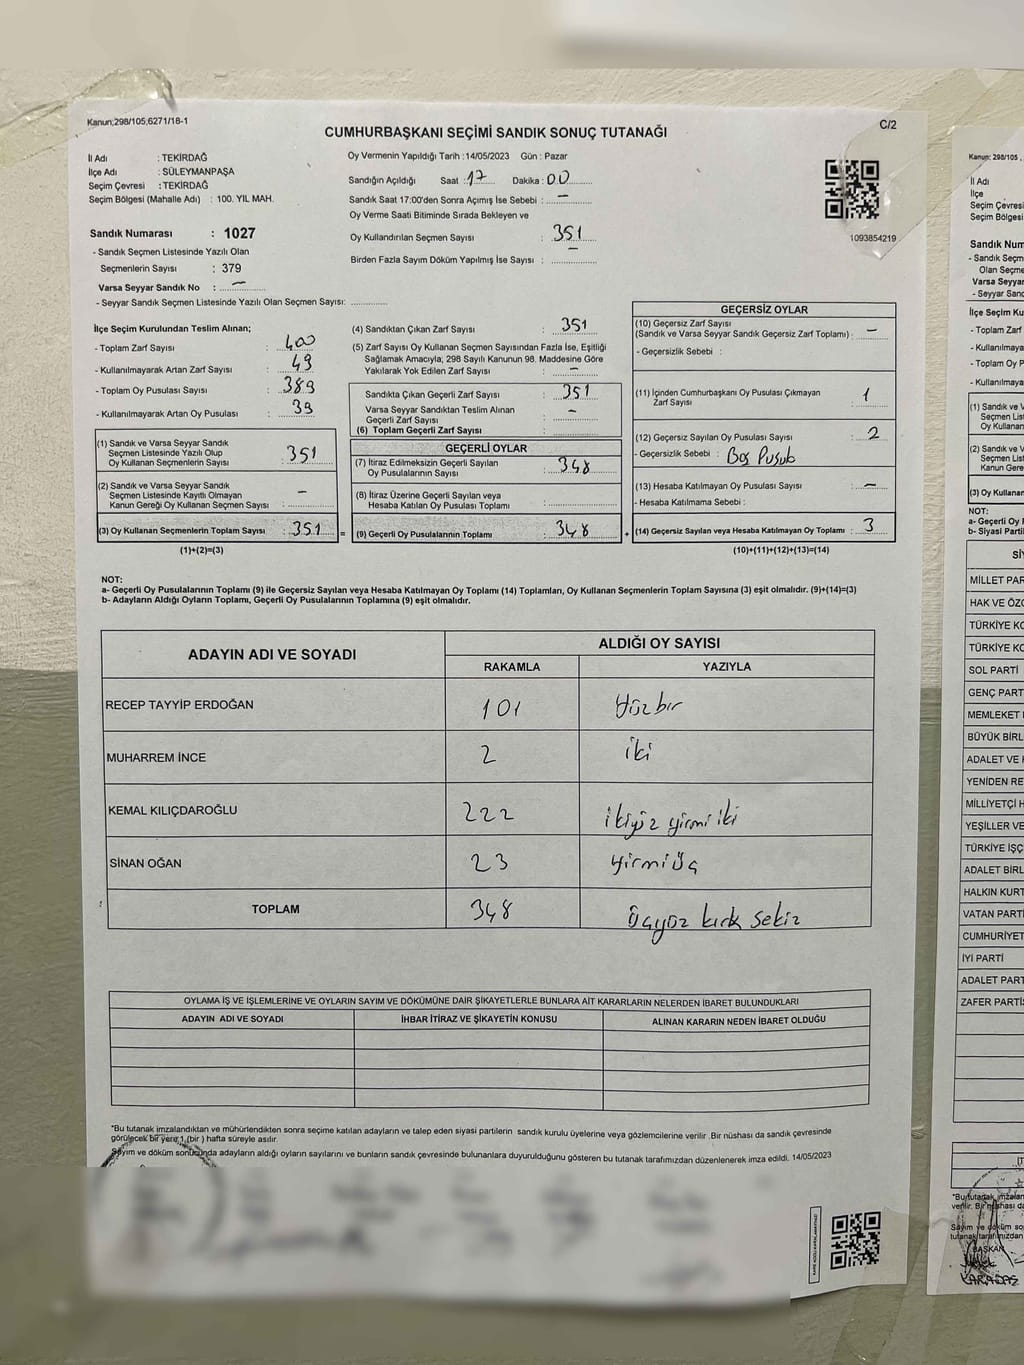 Kanun;298/105,6271/18-1
CUMHURBAŞKANI SEÇİMİ SANDIK SONUÇ TUTANAĞI
C/2
İl Adı : TEKİRDAĞ
İlçe Adı : SÜLEYMANPAŞA
Seçim Çevresi : TEKİRDAĞ
Seçim Bölgesi (Mahalle Adı) : 100. YIL MAH.
Sandık Numarası : 1027
- Sandık Seçmen Listesinde Yazılı Olan
Seçmenlerin Sayısı : 379
Varsa Seyyar Sandık No : —
- Seyyar Sandık Seçmen Listesinde Yazılı Olan Seçmen Sayısı:
Oy Vermenin Yapıldığı Tarih : 14/05/2023 Gün : Pazar
Sandığın Açıldığı Saat : 17 Dakika : 00
Sandık Saat 17:00'den Sonra Açımış İse Sebebi : —
Oy Verme Saati Bitiminde Sırada Bekleyen ve
Oy Kullandırılan Seçmen Sayısı : 351
Birden Fazla Sayım Döküm Yapılmış İse Sayısı : —
1093854219
İlçe Seçim Kurulundan Teslim Alınan;
- Toplam Zarf Sayısı : 400
- Kullanılmayarak Artan Zarf Sayısı : 49
- Toplam Oy Pusulası Sayısı : 389
- Kullanılmayarak Artan Oy Pusulası : 39
(1) Sandık ve Varsa Seyyar Sandık
Seçmen Listesinde Yazılı Olup
Oy Kullanan Seçmenlerin Sayısı : 351
(2) Sandık ve Varsa Seyyar Sandık
Seçmen Listesinde Kayıtlı Olmayan
Kanun Gereği Oy Kullanan Seçmen Sayısı : —
(3) Oy Kullanan Seçmenlerin Toplam Sayısı : 351 =
(1)+(2)=(3)
(4) Sandıktan Çıkan Zarf Sayısı : 351
(5) Zarf Sayısı Oy Kullanan Seçmen Sayısından Fazla İse, Eşitliği
Sağlamak Amacıyla; 298 Sayılı Kanunun 98. Maddesine Göre
Yakılarak Yok Edilen Zarf Sayısı : —
Sandıkta Çıkan Geçerli Zarf Sayısı : 351
Varsa Seyyar Sandıktan Teslim Alınan
Geçerli Zarf Sayısı : —
(6) Toplam Geçerli Zarf Sayısı :
GEÇERLİ OYLAR
(7) İtiraz Edilmeksizin Geçerli Sayılan
Oy Pusulalarının Sayısı : 348
(8) İtiraz Üzerine Geçerli Sayılan veya
Hesaba Katılan Oy Pusulası Toplamı :
(9) Geçerli Oy Pusulalarının Toplamı : 348 +
GEÇERSİZ OYLAR
(10) Geçersiz Zarf Sayısı
(Sandık ve Varsa Seyyar Sandık Geçersiz Zarf Toplamı) : —
- Geçersizlik Sebebi :
(11) İçinden Cumhurbaşkanı Oy Pusulası Çıkmayan
Zarf Sayısı : 1
(12) Geçersiz Sayılan Oy Pusulası Sayısı : 2
- Geçersizlik Sebebi : Boş Pusula
(13) Hesaba Katılmayan Oy Pusulası Sayısı : —
- Hesaba Katılmama Sebebi :
(14) Geçersiz Sayılan veya Hesaba Katılmayan Oy Toplamı : 3
(10)+(11)+(12)+(13)=(14)
NOT:
a- Geçerli Oy Pusulalarının Toplamı (9) ile Geçersiz Sayılan veya Hesaba Katılmayan Oy Toplamı (14) Toplamları, Oy Kullanan Seçmenlerin Toplam Sayısına (3) eşit olmalıdır. (9)+(14)=(3)
b- Adayların Aldığı Oyların Toplamı, Geçerli Oy Pusulalarının Toplamına (9) eşit olmalıdır.
ADAYIN ADI VE SOYADI
ALDIĞI OY SAYISI
RAKAMLA YAZIYLA
RECEP TAYYİP ERDOĞAN 101 Yüzbir
MUHARREM İNCE 2 iki
KEMAL KILIÇDAROĞLU 222 ikiyüz yirmi iki
SİNAN OĞAN 23 yirmi üç
TOPLAM 348 üçyüz kırk sekiz
OYLAMA İŞ VE İŞLEMLERİNE VE OYLARIN SAYIM VE DÖKÜMÜNE DAİR ŞİKAYETLERLE BUNLARA AİT KARARLARIN NELERDEN İBARET BULUNDUKLARI
ADAYIN ADI VE SOYADI İHBAR İTİRAZ VE ŞİKAYETİN KONUSU ALINAN KARARIN NEDEN İBARET OLDUĞU
*Bu tutanak imzalandıktan ve mühürlendikten sonra seçime katılan adayların ve talep eden siyasi partilerin sandık kurulu üyelerine veya gözlemcilerine verilir. Bir nüshası da sandık çevresinde
görülecek bir yere 1 (bir) hafta süreyle asılır.
Sayım ve döküm sonucunda adayların aldığı oyların sayılarını ve bunların sandık çevresinde bulunanlara duyurulduğunu gösteren bu tutanak tarafımızdan düzenlenerek imza edildi. 14/05/2023
Kanun: 298/105 ,
İl Adı
İlçe
Seçim Çevres
Seçim Bölges
Sandık Num
- Sandık Seçm
Olan Seçmen
Varsa Seyyar
- Seyyar Sand
İlçe Seçim Ku
- Toplam Zarf
- Kullanılmaya
- Toplam Oy P
- Kullanılmaya
(1) Sandık ve Va
Seçmen List
Oy Kullanan
(2) Sandık ve Va
Seçmen Lis
Kanun Gere
(3) Oy Kullanan
NOT:
a- Geçerli Oy
b- Siyasi Parti
Sİ
MİLLET PAR
HAK VE ÖZG
TÜRKİYE KO
TÜRKİYE KO
SOL PARTİ
GENÇ PART
MEMLEKET
BÜYÜK BİRL
ADALET VE
YENİDEN RE
MİLLİYETÇİ H
YEŞİLLER VE
TÜRKİYE İŞÇ
ADALET BİRL
HALKIN KURT
VATAN PARTİ
CUMHURİYET
İYİ PARTİ
ADALET PART
ZAFER PARTİS
*Bu tutanak imzalan
verilir. Bir nüshası da
Sayım ve döküm so
tutanak tarafımızdan
BAŞKAN
KARADAŞ